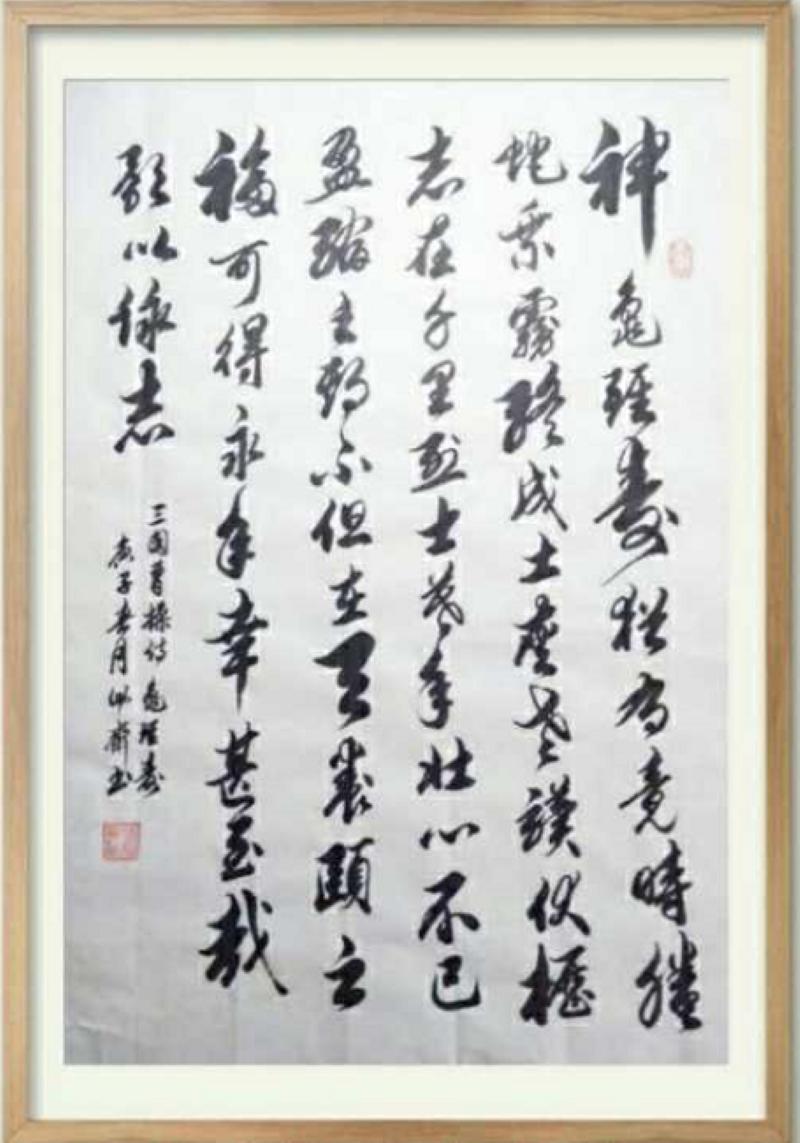 神龜雖壽猶有竟時螣
蛇乘霧終成土灰老驥伏櫪
志在千里烈士暮年壯心不已
盈縮之期不但在天養頤之
福可得永年幸甚至哉
歌以詠志
三国曹操诗龜雖壽
庚子春月佩齋书